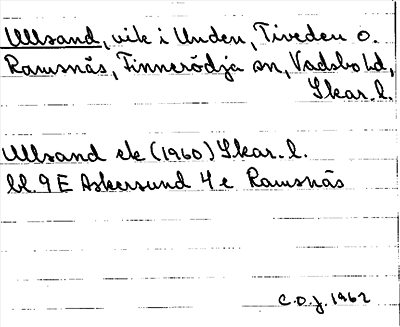 Ullsand, vik i Unden, Tiveden o.
Ramsnäs, Finnerödja sn, Vadsbo hd,
Skar. l.
Ullsand ek (1960) Skar. l.
bl. 9 E Askersund 4 e Ramsnäs
C.O.J. 1962